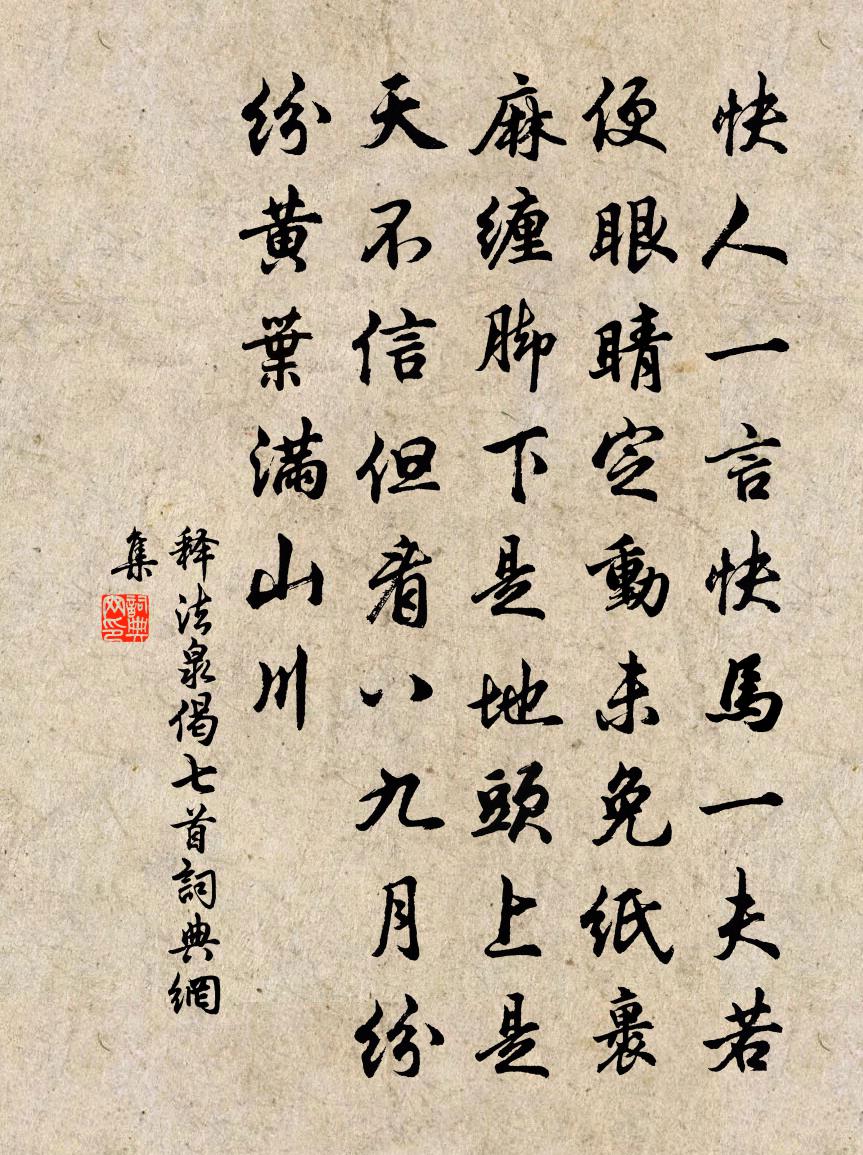 快人一言快馬一夫若
便眼睛定動未免紙裹
麻纏脚下是地頭上是
天不信但看八九月紛
紛黄葉滿山川
释法泉偈七首詞典網
集
詞典
网印